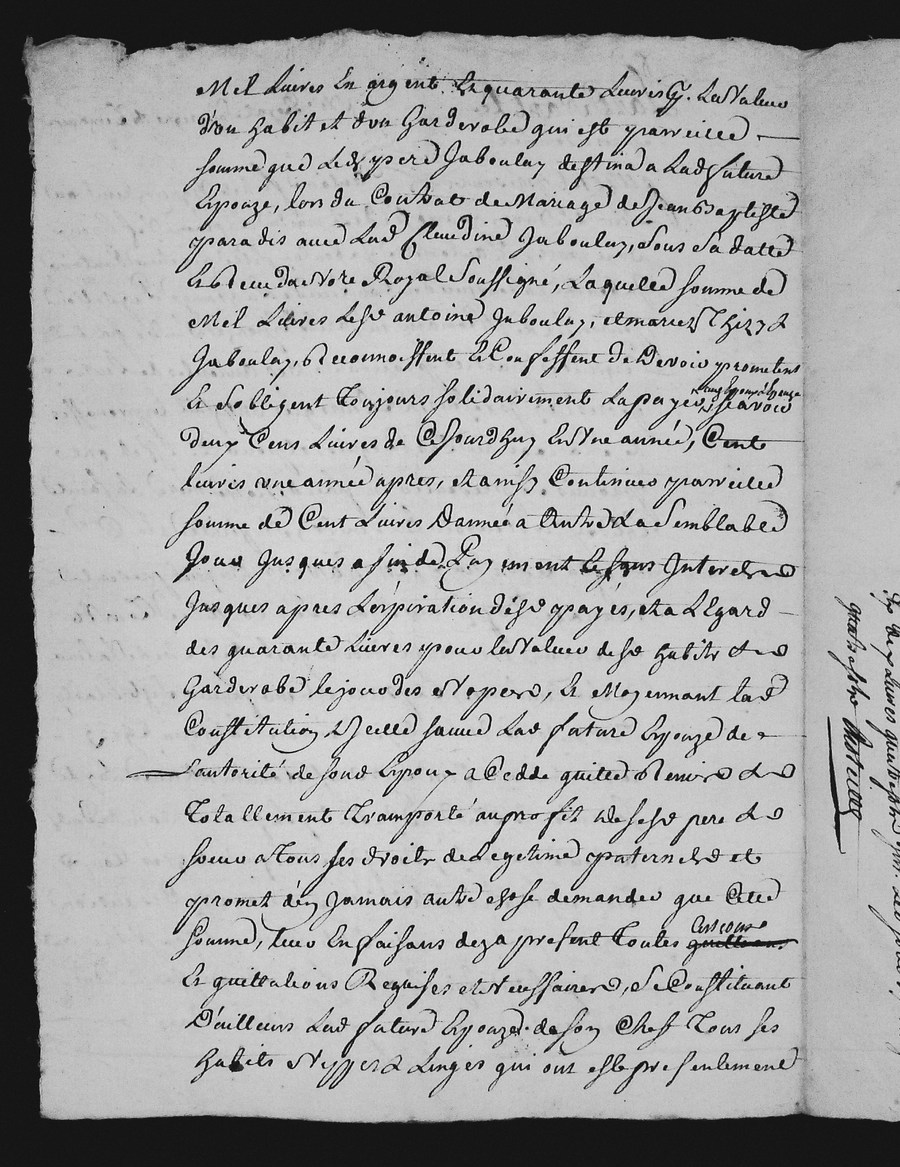 Mil Livres En argent Et quarante Livres La Valeur
d'un habit et d'un Garderobe qui est pareille
somme que Led pere Jaboulay destina a Lad future
Epouze, lors du Contrat de Mariage de Jean Baptiste
paradis avec Lad Claudine Jaboulay, sous sa datte
Et Receu du Nore Royal Soussigné, Laquelle somme de
Mil Livres Lesd antoine Jaboulay, et mariez &
Jaboulay, Reconnoissent Et Confessent de Devoir promettent
aux Epoux & Epouze
Et Sobligent Toujours solidairement La payer, scavoir
deux Cens Livres de Cejourdhuy En Une année, Cent
livres une année apres, et ainsy Continuer pareille
somme de Cent Livres D'année a Autre La Semblable
Jour Jusques a fin de Payement Le sans Interets
Jusques apres L'expiration desd payes, et a L'Egard
des quarante Livres pour la Valeur desd habits &
Garderobe le jour des Nopces, Et Moyennant lad
Constitution Icelle Lad future Epouze de
L'autorité de sond Epoux a Cedde quitte Remis &
Totallement Transporté au profit de sesd pere &
soeur Tous ses droits de Legitime paternels et
promet d'en Jamais autre chose demander que Cette
Somme, leur En faisant deza present Toutes
Et quittations Requises et Necessaires, Se Constituant
D'ailleurs Lad future Epouze de son Chef Tous ses
habits Nippes & Linges qui ont esté presentement